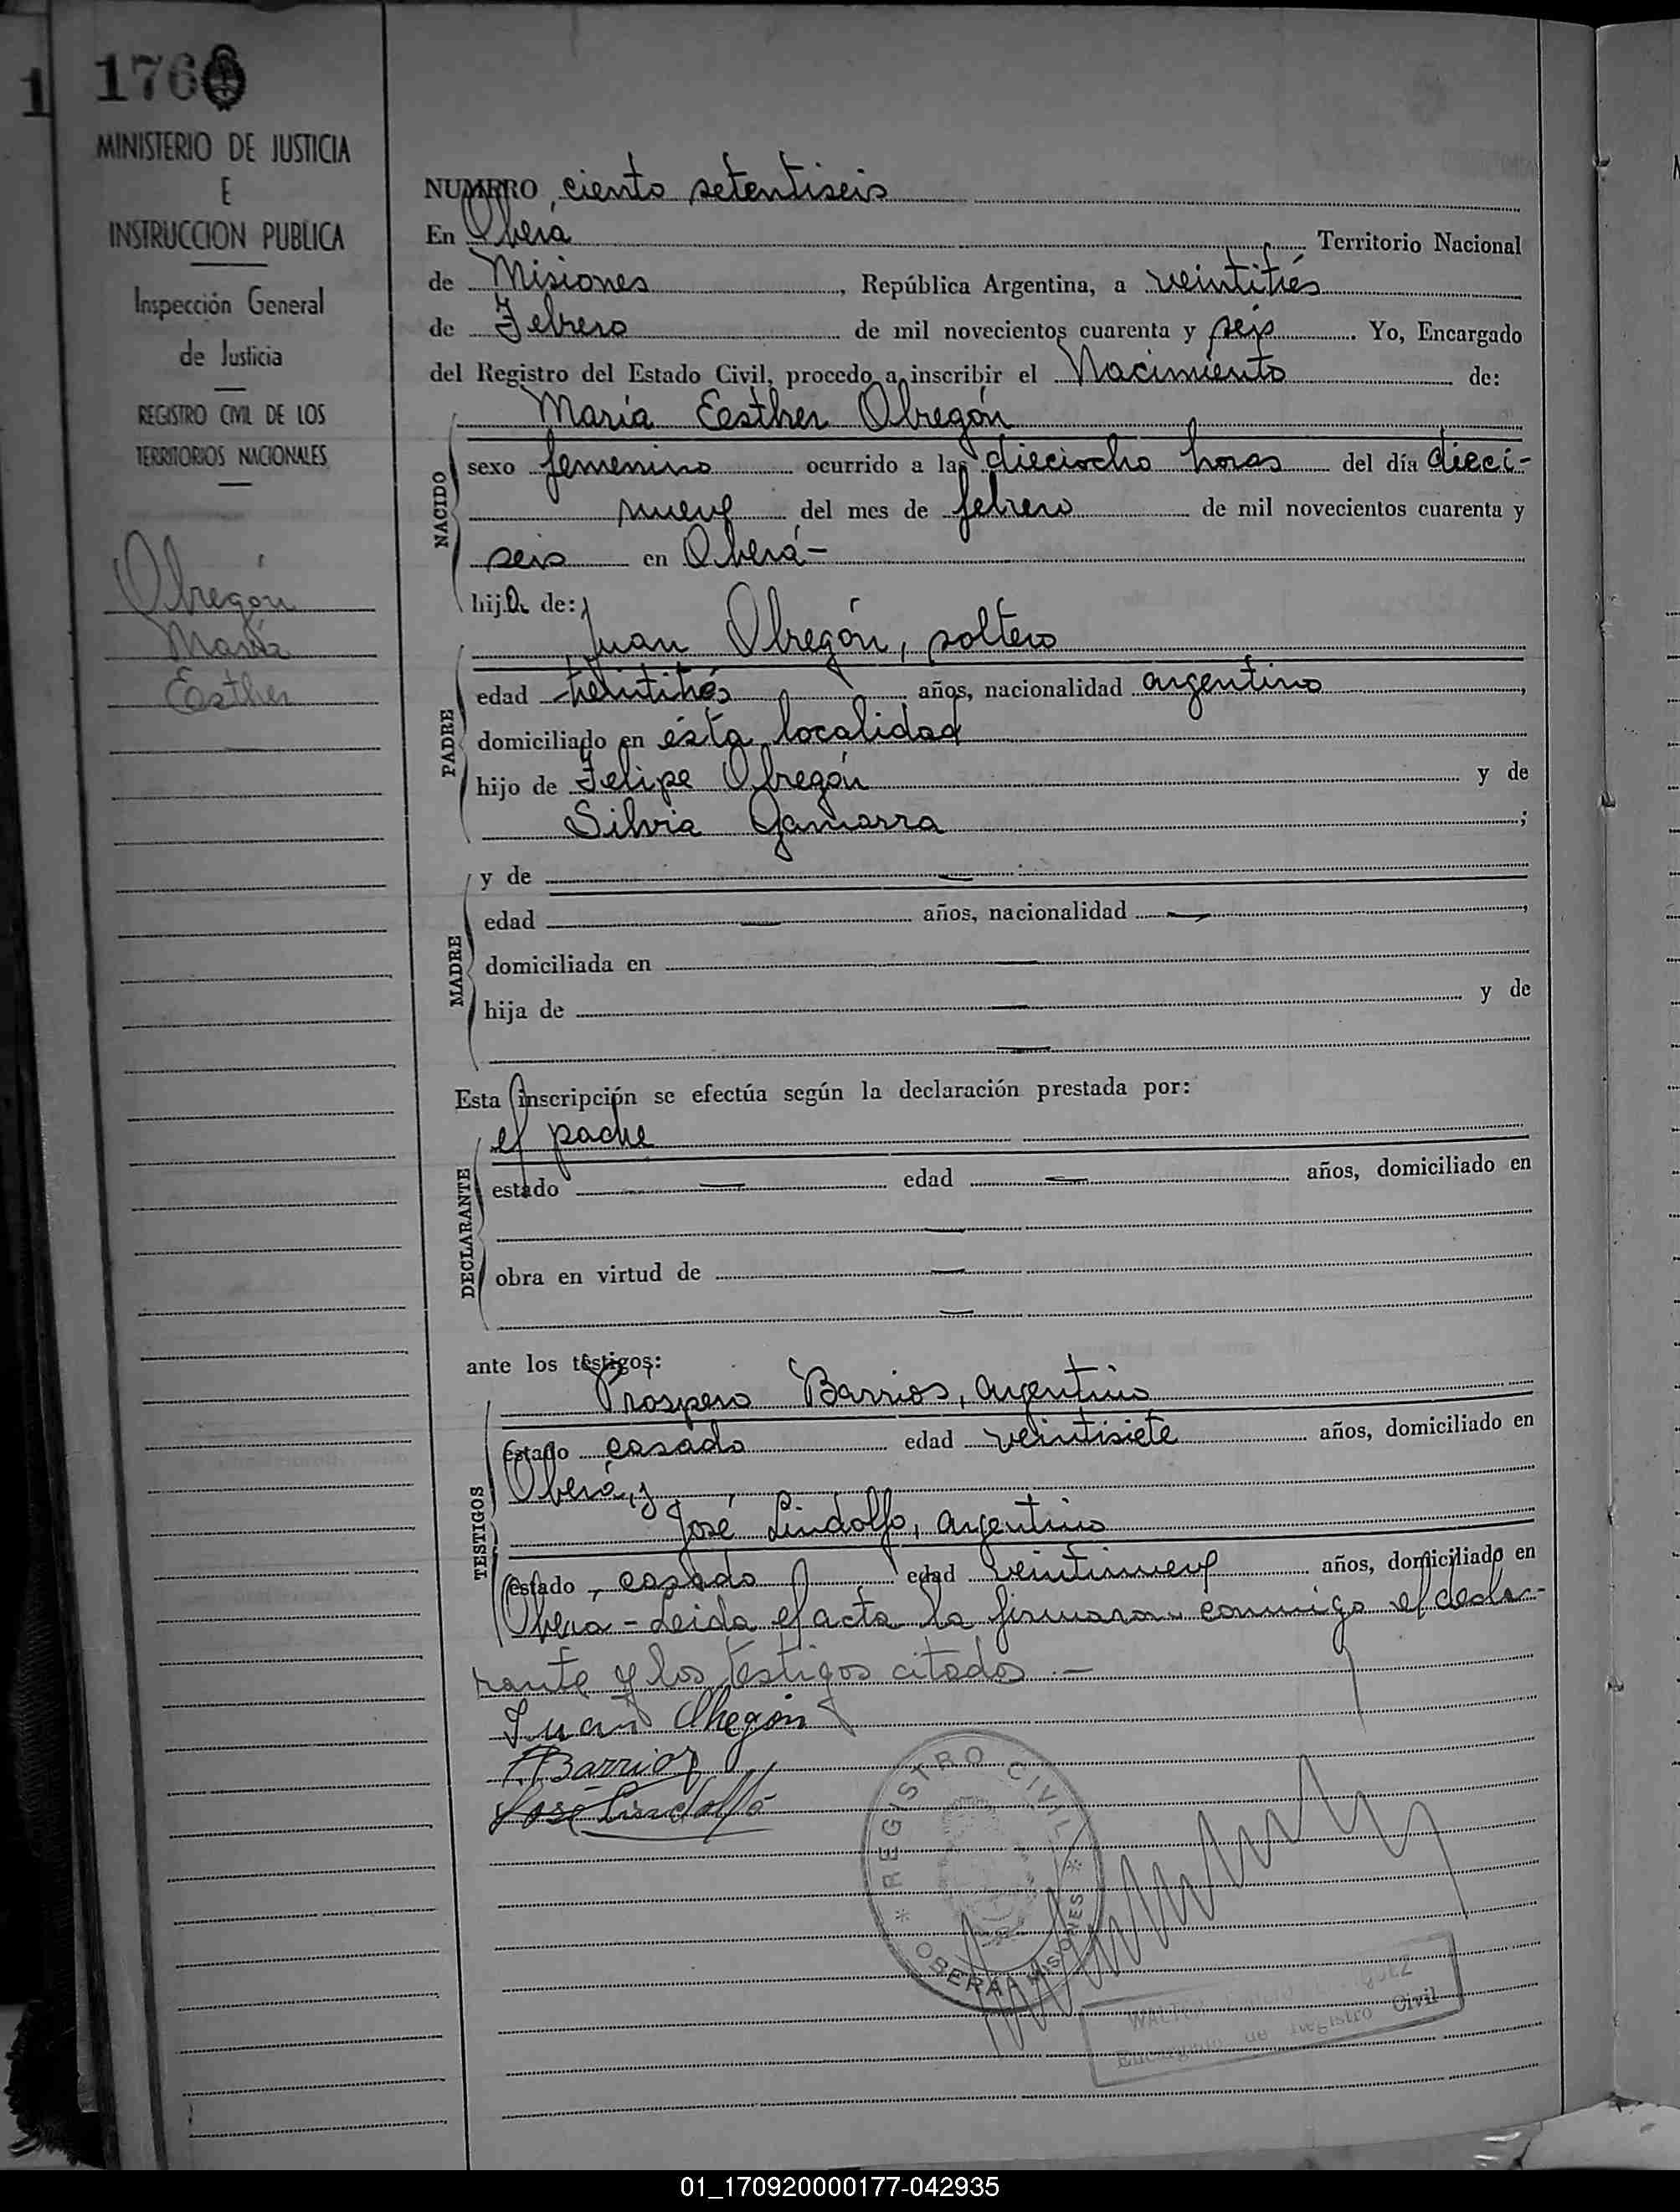 1
176
MINISTERIO DE JUSTICIA
E
INSTRUCCION PUBLICA
Inspección General
de Justicia
REGISTRO CIVIL DE LOS
TERRITORIOS NACIONALES
Obregón
María
Eesther
NUMERO ciento setentiseis
En Oberá Territorio Nacional
de Misiones, República Argentina, a veintitrés
de Febrero de mil novecientos cuarenta y seis. Yo, Encargado
del Registro del Estado Civil, procedo a inscribir el Nacimiento de:
María Eesther Obregón
NACIDO
sexo femenino ocurrido a las dieciocho horas del día dieci-
nueve del mes de febrero de mil novecientos cuarenta y
seis en Oberá-
hija de:
PADRE
Juan Obregón, soltero
edad años, nacionalidad argentino,
domiciliado en ésta localidad
hijo de Felipe Obregón y de
Silvia Gamarra;
MADRE
y de —
edad — años, nacionalidad —,
domiciliada en —
hija de — y de
—
Esta inscripción se efectúa según la declaración prestada por:
DECLARANTE
el padre
estado — edad — años, domiciliado en
—
obra en virtud de —
—
ante los testigos:
TESTIGOS
Prospero Barrios, argentino
estado casado edad veintisiete años, domiciliado en
Oberá, y
José Lindolfo, argentino
estado casado edad veintinueve años, domiciliado en
Oberá - Leida el acta la firmaron conmigo el decla-
rante y los testigos citados.—
Juan Obregón
P. Barrios
Jose Lindolfo
* REGISTRO CIVIL *
OBERA MISIONES
WALTER
Encargado de Registro Civil
01_170920000177-042935